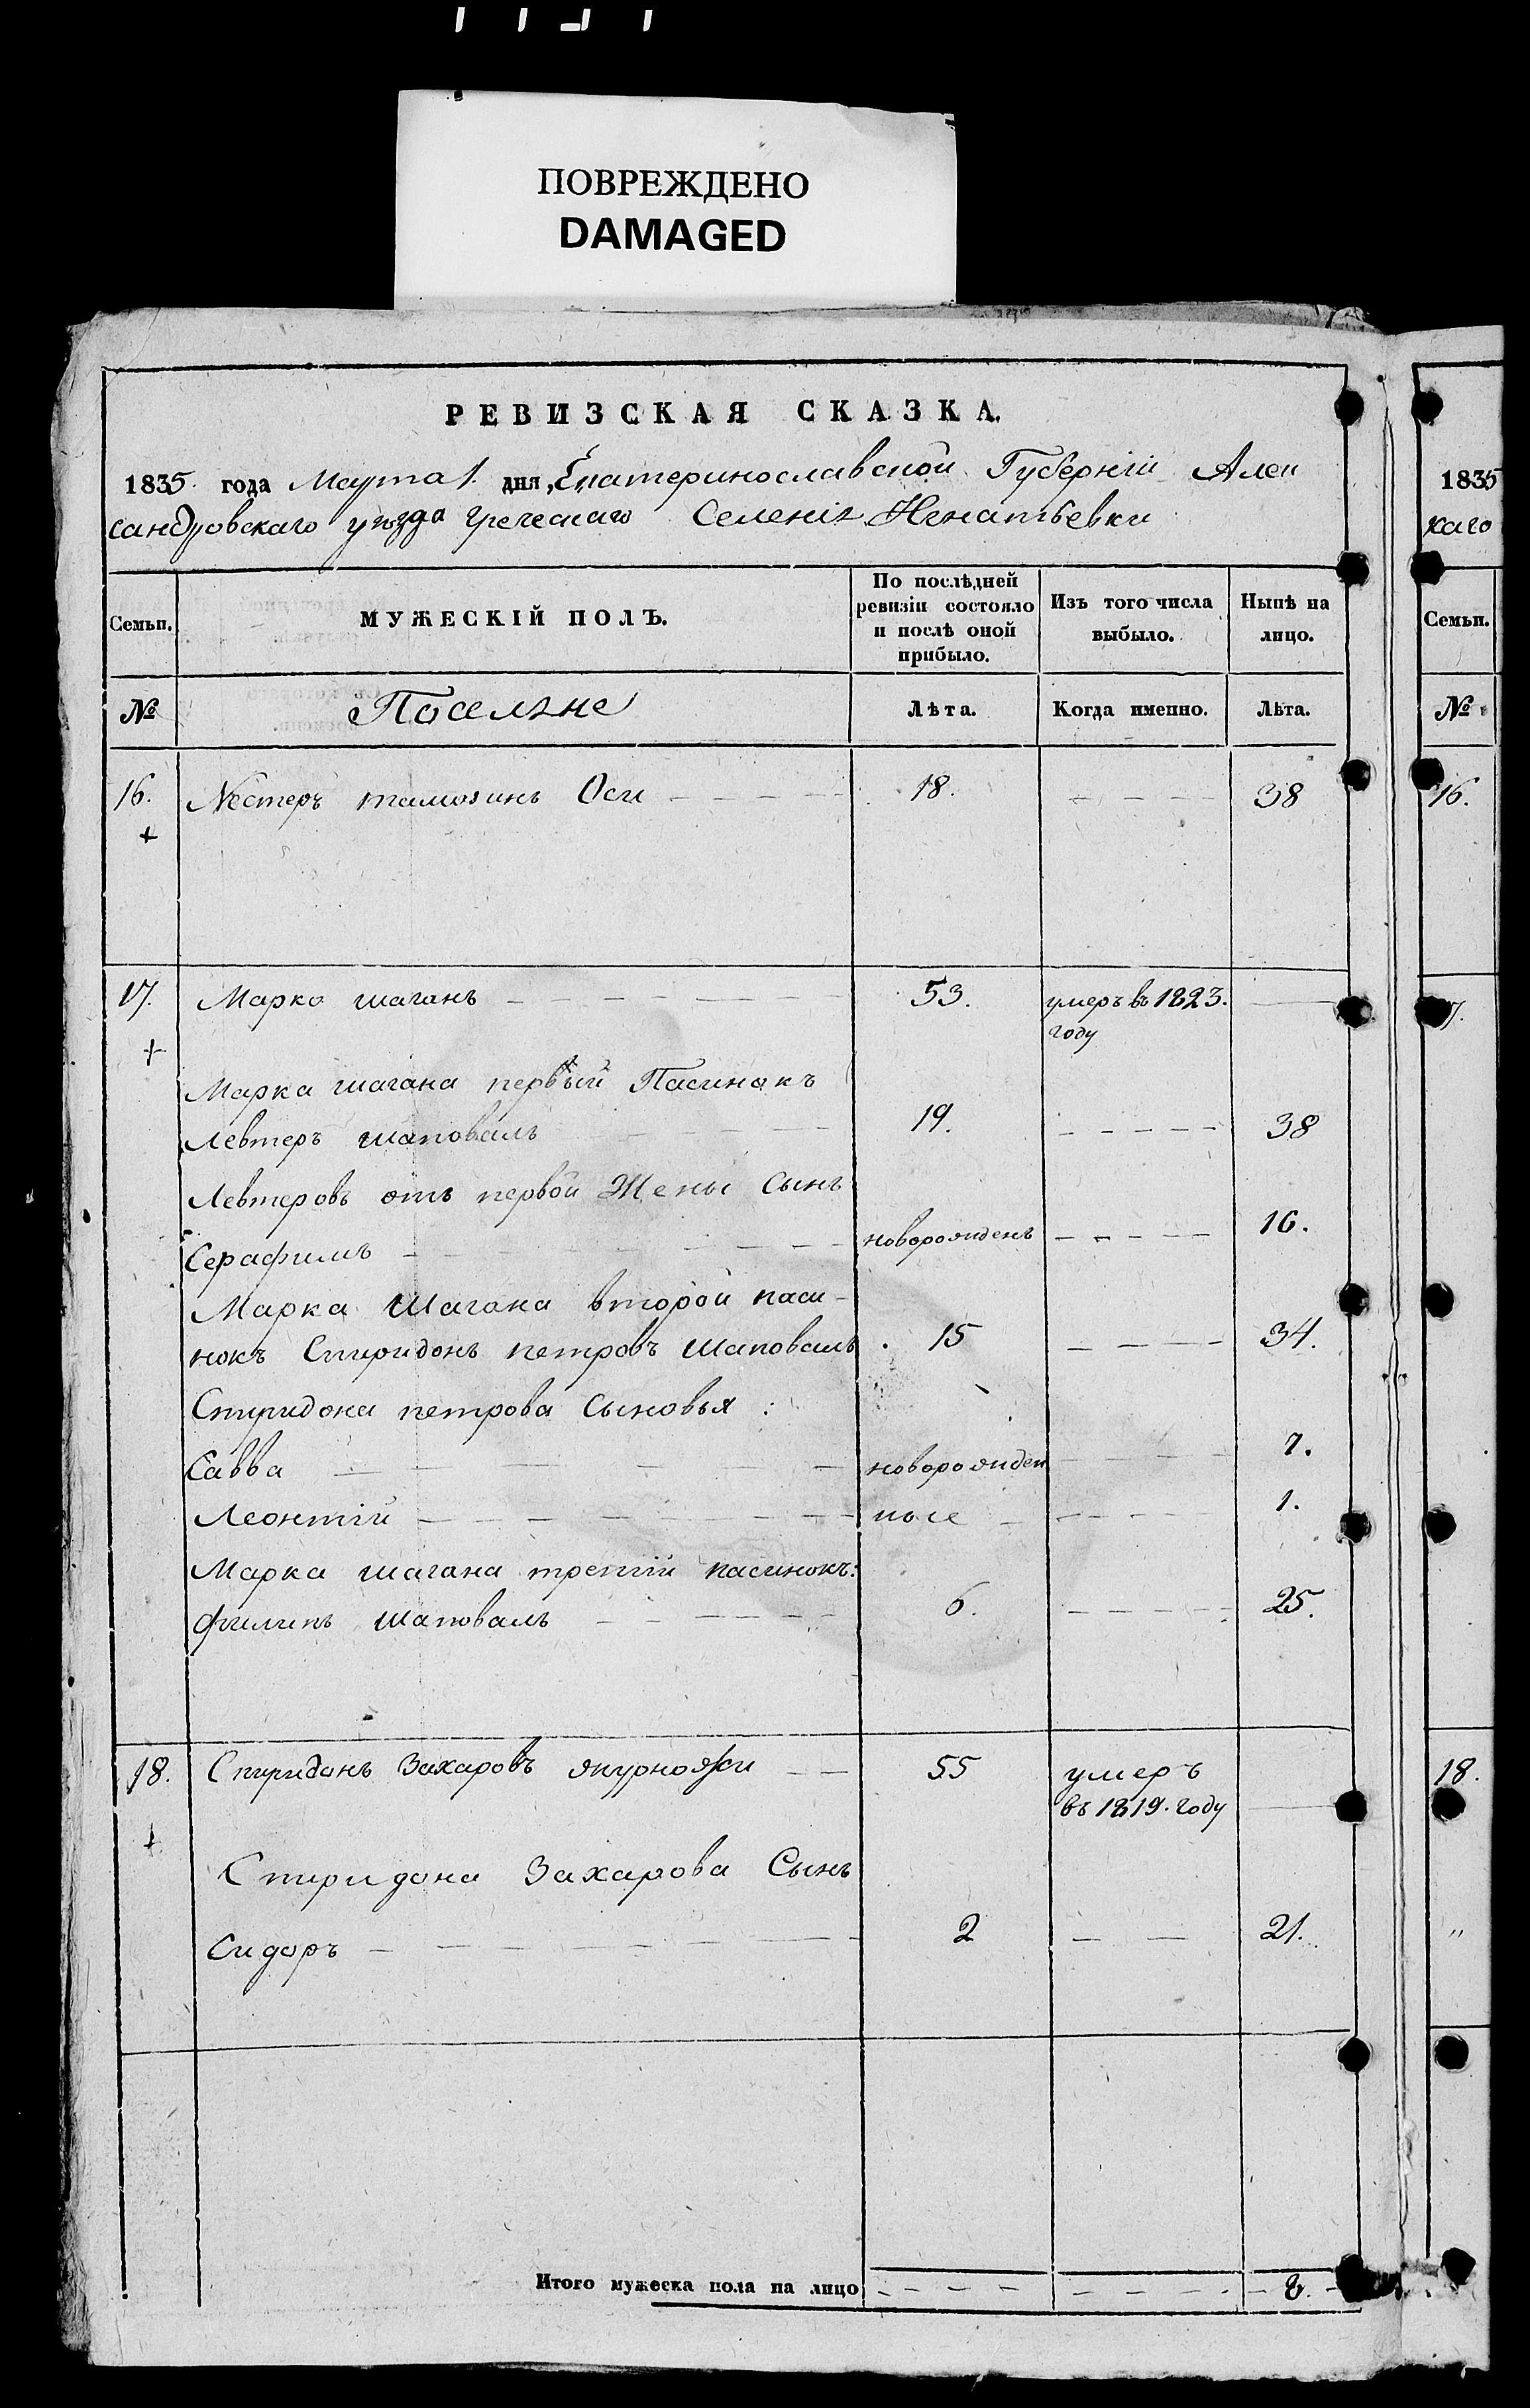 ПОВРЕЖДЕНО
DAMAGED
РЕВИЗСКАЯ СКАЗКА.
1835 года Марта 1. дня, Екатеринославской Губерніи Алек
сандровскаго уѣзда греческаго Селенія Игнатьевки
Семьи. МУЖЕСКІЙ ПОЛЪ. По послѣдней ревизіи состояло и послѣ оной прибыло. Изъ того числа выбыло. Нынѣ на лицо.
№ Поселяне Лѣта. Когда именно. Лѣта.
16. Нестеръ Оси 18. 38
17. Марко шаганъ 53. умеръ въ 1823.
году
Марка шагана первый Пасинокъ
Левтеръ шаповалъ 19. 38
Левтеровъ отъ первой Жены Сынъ
Серафимъ новорожденъ 16.
Марка Шагана второй паси-
нокъ Спиридонъ петровъ шаповалъ 15 34.
Спиридона петрова Сыновья:
Савва новорожден 7.
Леонтій ные 1.
Марка шагана третій пасинокъ:
филипъ шаповалъ 6. 25.
18. Спиридонъ Захаровъ 55 умеръ
въ 1819. году
Спиридона Захарова Сынъ
Сидоръ 2 21.
Итого мужеска пола на лицо 8.
1835
каго
Семьи.
№
16.
18.